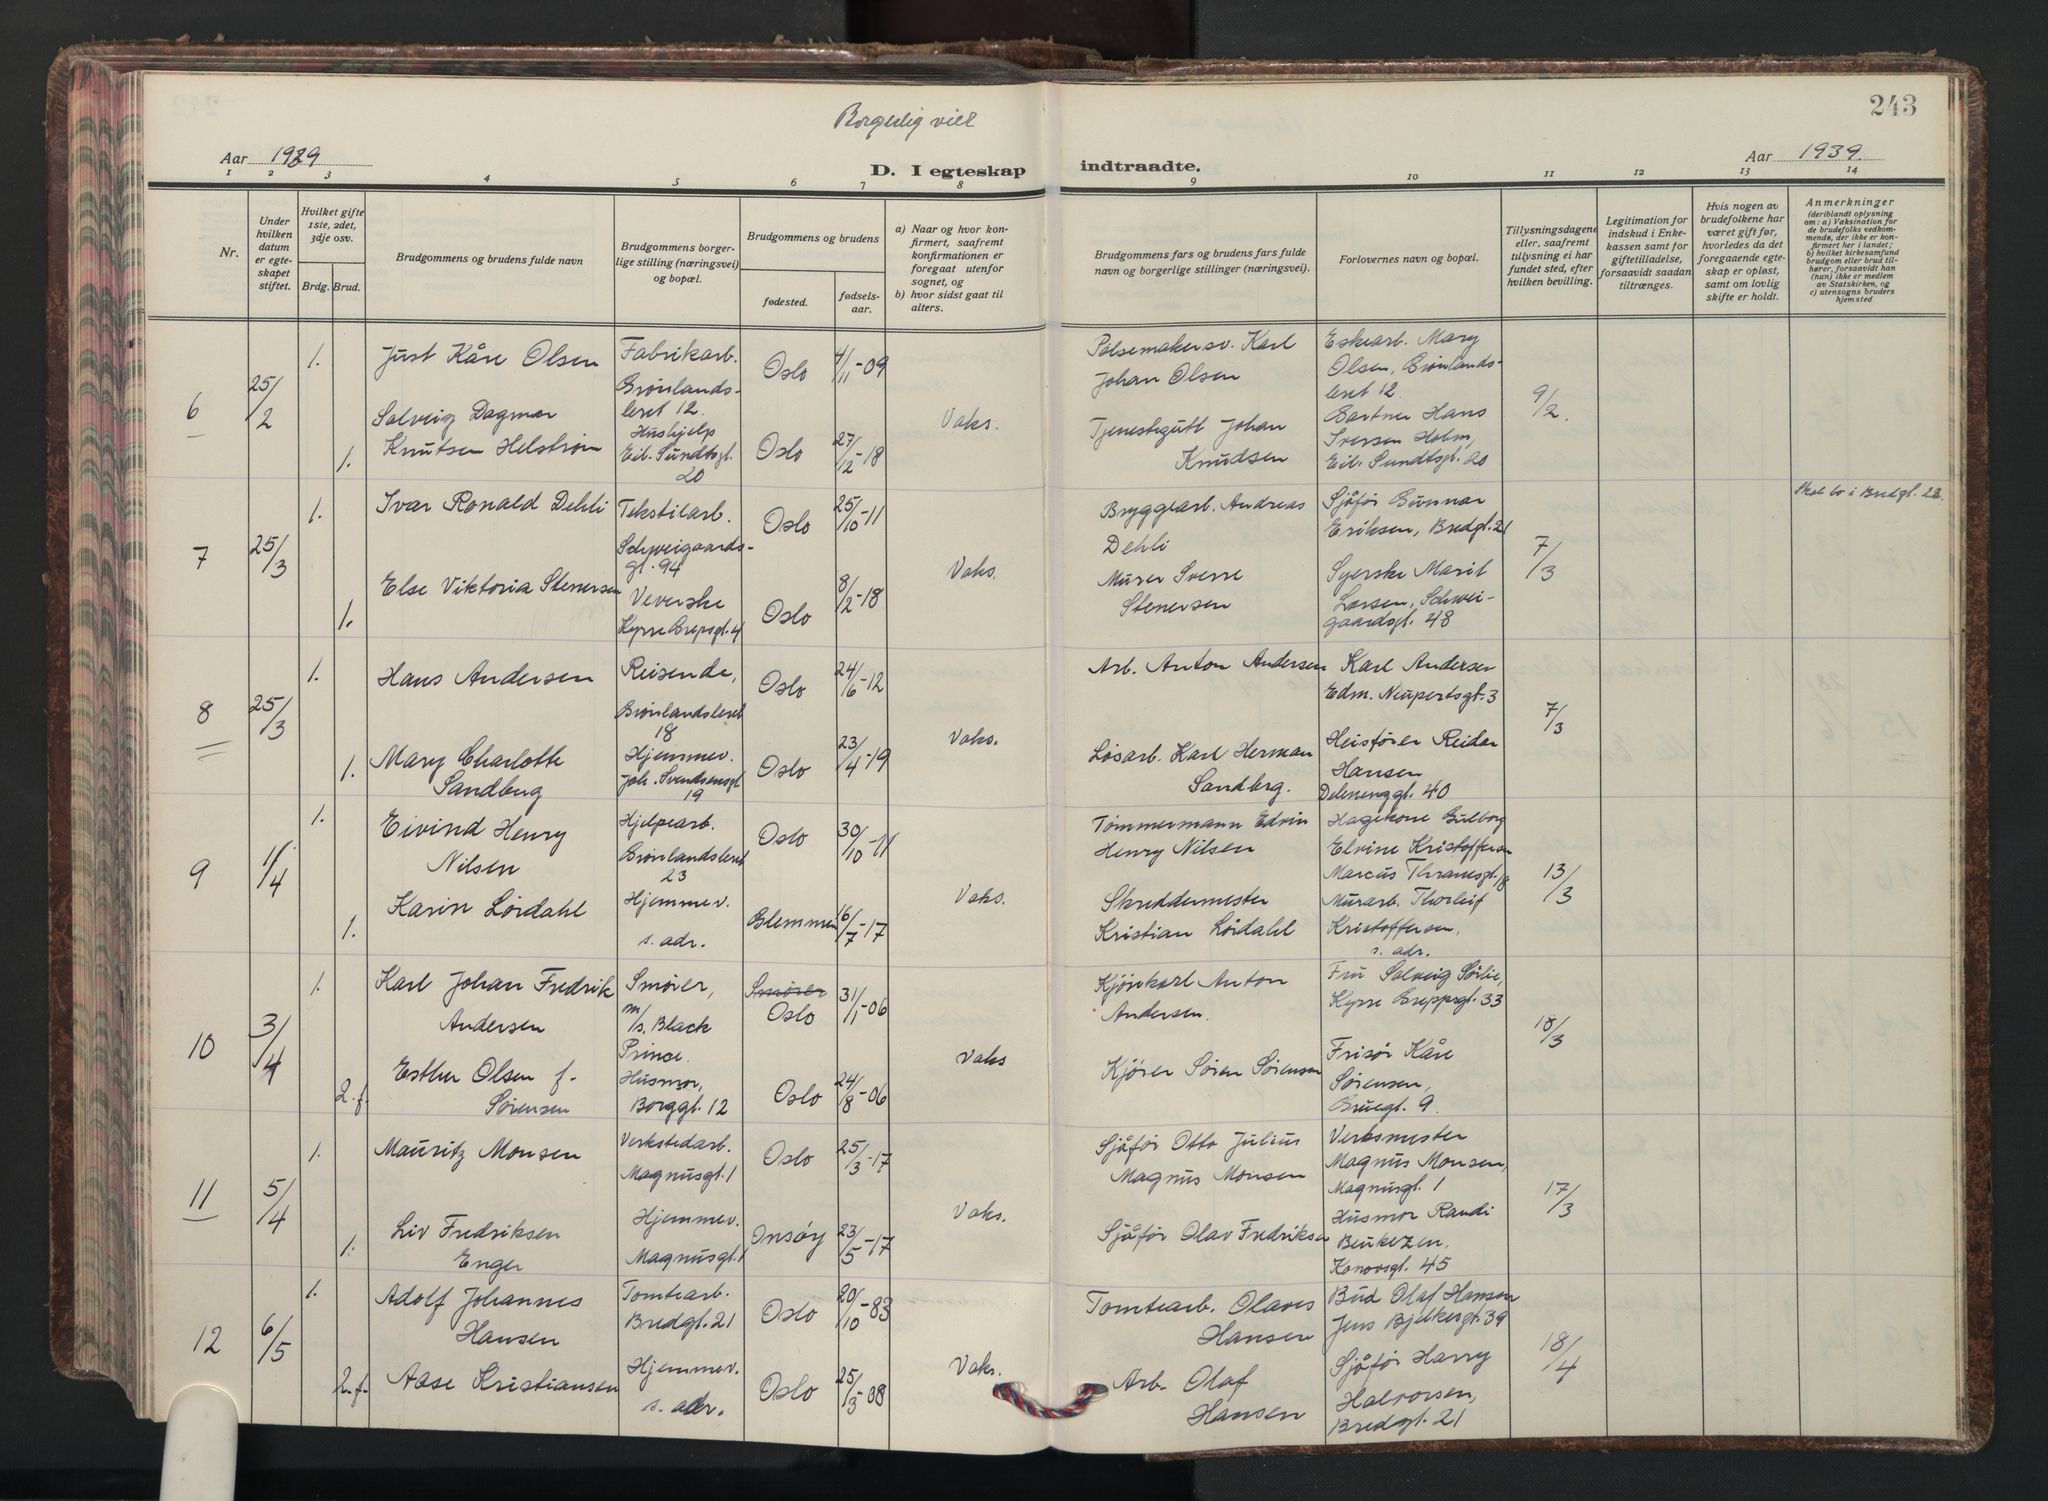 243
Borgerlig viet
Aar 1939
D. I egteskap indtraadte.
Aar 1939.
1 2 3 4 5 6 7 8 9 10 11 12 13 14
Nr.
Under hvilken datum er egteskapet stiftet.
Hvilket gifte 1ste, 2det, 3dje osv.
Brdg. Brud.
Brudgommens og brudens fulde navn
Brudgommens borgerlige stilling (næringsvei) og bopæl.
Brudgommens og brudens
fødested.
fødselsaar.
a) Naar og hvor konfirmert, saafremt konfirmationen er foregaat utenfor sognet, og
b) hvor sidst gaat til alters.
Brudgommens fars og brudens fars fulde navn og borgerlige stillinger (næringsvei).
Forlovernes navn og bopæl.
Tillysningsdagene eller, saafremt tillysning ei har fundet sted, efter hvilken bevilling.
Legitimation for indskud i Enkekassen samt for giftetilladelse, forsaavidt saadan tiltrænges.
Hvis nogen av brudefolkene har været gift før, hvorledes da det foregaaende egteskap er opløst, samt om lovlig skifte er holdt.
Anmerkninger
(deriblandt oplysning om: a) Vaksination for de brudefolks vedkommende, der ikke er konfirmert her i landet; b) hvilket kirkesamfund brudgom eller brud tilhører, forsaavidt han (hun) ikke er medlem av Statskirken, og c) utensogns bruders hjemsted
6
25/2
1.
Just Kåre Olsen
Fabrikarb.
Grønlandsleret 12.
Oslo
4/11-09
1.
Solveig Dagmar
Knutsen Helstrøm
Hushjelp
Eil. Sundtsgt. 20
Oslo
27/12-18
Vaks.
Pølsemakersv. Karl
Johan Olsen
Tjenestegutt Johan
Knudsen
Eskearb. Mary
Olsen, Grønlandsleret 12.
Gartner Hans
Iversen Holm,
Eil. Sundtsgt. 20
9/2.
7
25/3
1.
Ivar Ronald Dehli
Tekstilarb.
Schweigaardsgt. 94
Oslo
25/10-11
1.
Else Viktoria Stenersen
Veverske
Kyrre Grepsgt. 4
Oslo
8/2-18
Vaks.
Bryggearb. Andreas
Dehli
Murer Sverre
Stenersen
Sjåfør Gunnar
Eriksen, Bredgt. 21
Syerske Marit
Larsen, Schweigaardsgt. 48
7/3
Skal bo i Bredgt. 22.
8
25/3
1.
Hans Andersen
Reisende,
Grønlandsleret 18
Oslo
24/6-12
1.
Mary Charlotte
Sandberg
Hjemmev.
Joh. Svendsensgt. 19
Oslo
23/4-19
Vaks.
Arb. Anton Andersen
Løsarb. Karl Herman
Sandberg.
Karl Andersen
Edm. Neupertsgt. 3
Heisfører Reidar
Hansen
Delenenggt. 40
7/3
9
1/4
1.
Eivind Henry
Nilsen
Hjelpearb.
Grønlandsleret 23
Oslo
30/10-11
1.
Karin Lørdahl
Hjemmev.
s. adr.
Glemmen
16/7-17
Vaks.
Tømmermann Edvin
Henry Nilsen
Skreddermester
Kristian Lørdahl
Hagekone Gulborg
Elvine Kristoffersen
Marcus Thranesgt. 18
Murarb. Thorleif
Kristoffersen,
s. adr.
13/3
10
3/4
1.
Karl Johan Fredrik
Andersen
Smører,
m/s. Black
Prince.
Smører
Oslo
31/1-06
2.f.
Esther Olsen f.
Sørensen
Husmor,
Borggt. 12
Oslo
24/8-06
Vaks
Kjørekarl Anton
Andersen.
Kjører Søren Sørensen
Fru Solveig Sørlie,
Kyrre Greppsgt. 33
Frisør Kåre
Sørensen,
Bruegt. 9.
18/3
11
5/4
1.
Mauritz Monsen
Verkstedarb.
Magnusgt. 1
Oslo
25/3-17
1.
Liv Fredriksen
Enger
Hjemmev.
Magnusgt. 1
Onsøy
23/5-17
Vaks.
Sjåfør Otto Julius
Magnus Monsen
Sjåfør Olav Fredriksen
Verksmester
Magnus Monsen,
Magnusgt. 1
Husmor Randi
Beukezen,
Konowsgt. 45
17/3
12
6/5
1.
Adolf Johannes
Hansen
Tomtearb.
Bredgt. 21
Oslo
20/10-83
2.f.
Aase Kristiansen
Hjemmev.
s. adr.
Oslo
25/3-08
Vaks.
Tomtearb. Olaves
Hansen
Arb. Olaf
Hansen
Bud Olaf Hansen
Jens Bjelkesgt. 39
Sjåfør Harry
Halvorsen,
Bredgt. 21
18/4